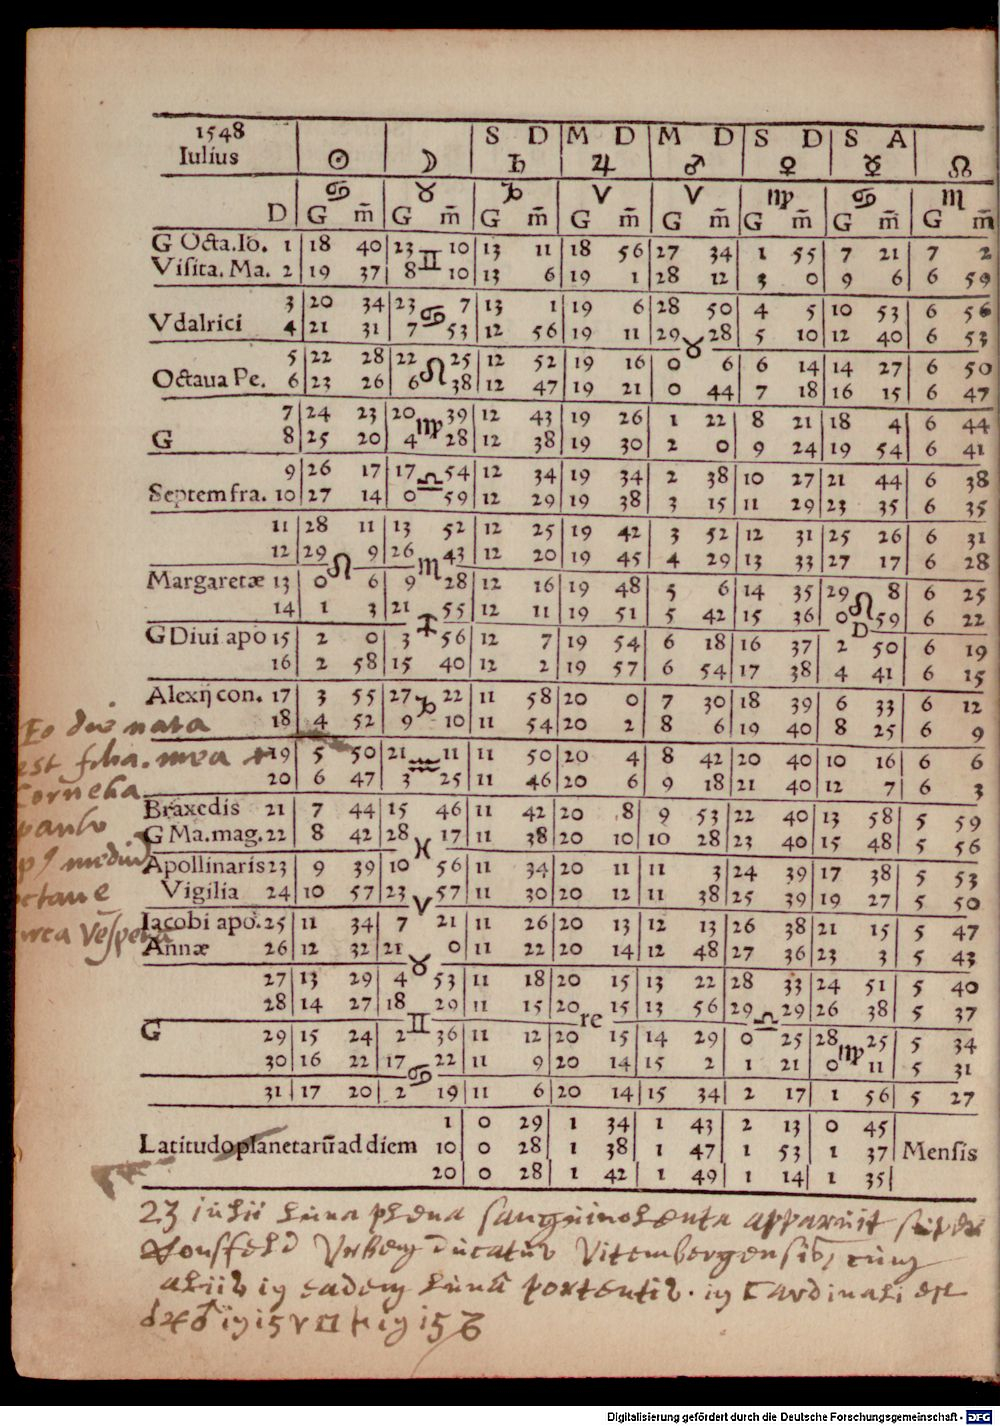 1548 S D M D M D S D S A
Iulius ☉ ☽ ♄ ♃ ♂ ♀ ☿ ☊
♋ ♉ ♑ V V ♍ ♋ ♏
D G m̄ G m̄ G m̄ G m̄ G m̄ G m̄ G m̄ G m̄
G Octa.Io. 1 18 40 23 10 13 11 18 56 27 34 1 55 7 21 7 2
♊
Visita. Ma. 2 19 37 8 10 13 6 19 1 28 12 3 0 9 6 6 59
3 20 34 23 7 13 1 19 6 28 50 4 5 10 53 6 56
♋
Vdalrici 4 21 31 7 53 12 56 19 11 29 28 5 10 12 40 6 53
♉
5 22 28 22 25 12 52 19 16 0 6 6 14 14 27 6 50
♌
Octaua Pe. 6 23 26 6 38 12 47 19 21 0 44 7 18 16 15 6 47
7 24 23 20 39 12 43 19 26 1 22 8 21 18 4 6 44
♍
G 8 25 20 4 28 12 38 19 30 2 0 9 24 19 54 6 41
9 26 17 17 54 12 34 19 34 2 38 10 27 21 44 6 38
♎
Septem fra. 10 27 14 0 59 12 29 19 38 3 15 11 29 23 35 6 35
11 28 11 13 52 12 25 19 42 3 52 12 31 25 26 6 31
12 29 9 26 43 12 20 19 45 4 29 13 33 27 17 6 28
♌ ♏
Margaretæ 13 0 6 9 28 12 16 19 48 5 6 14 35 29 8 6 25
♌
14 1 3 21 55 12 11 19 51 5 42 15 36 0 59 6 22
♐ D
G Diui apo 15 2 0 3 56 12 7 19 54 6 18 16 37 2 50 6 19
16 2 58 15 40 12 2 19 57 6 54 17 38 4 41 6 15
Alexij con. 17 3 55 27 22 11 58 20 0 7 30 18 39 6 33 6 12
♑
18 4 52 9 10 11 54 20 2 8 6 19 40 8 25 6 9
19 5 50 21 11 11 50 20 4 8 42 20 40 10 16 6 6
♒
20 6 47 3 25 11 46 20 6 9 18 21 40 12 7 6 3
Braxedis 21 7 44 15 46 11 42 20 8 9 53 22 40 13 58 5 59
G Ma.mag. 22 8 42 28 17 11 38 20 10 10 28 23 40 15 48 5 56
♓
Apollinaris 23 9 39 10 56 11 34 20 11 11 3 24 39 17 38 5 53
Vigilia 24 10 57 23 57 11 30 20 12 11 38 25 39 19 27 5 50
V
Iacobi apo. 25 11 34 7 21 11 26 20 13 12 13 26 38 21 15 5 47
Annæ 26 12 32 21 0 11 22 20 14 12 48 27 36 23 3 5 43
♉
27 13 29 4 53 11 18 20 15 13 22 28 33 24 51 5 40
28 14 27 18 29 11 15 20 15 13 56 29 29 26 38 5 37
♊ re ♎
G 29 15 24 2 36 11 12 20 15 14 29 0 25 28 25 5 34
♍
30 16 22 17 22 11 9 20 14 15 2 1 21 0 11 5 31
♋
31 17 20 2 19 11 6 20 14 15 34 2 17 1 56 5 27
1 0 29 1 34 1 43 2 13 0 45
Latitudo planetarũ ad diem 10 0 28 1 38 1 47 1 53 1 37 Mensis
20 0 28 1 42 1 49 1 14 1 35
Eo die nata
est filia mea
Cornelia
paulo
medium
octaue
circa Vespera
23 iulii Luna plena sanguinolenta apparuit super
Vrbem ducatus Vitembergensis, cum
aliis in eadem Luna portentis. in Cardinali est
Digitalisierung gefördert durch die Deutsche Forschungsgemeinschaft - DFG